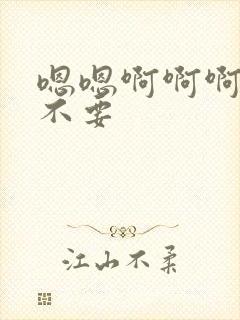 嗯嗯啊啊啊
不要
江山不柔